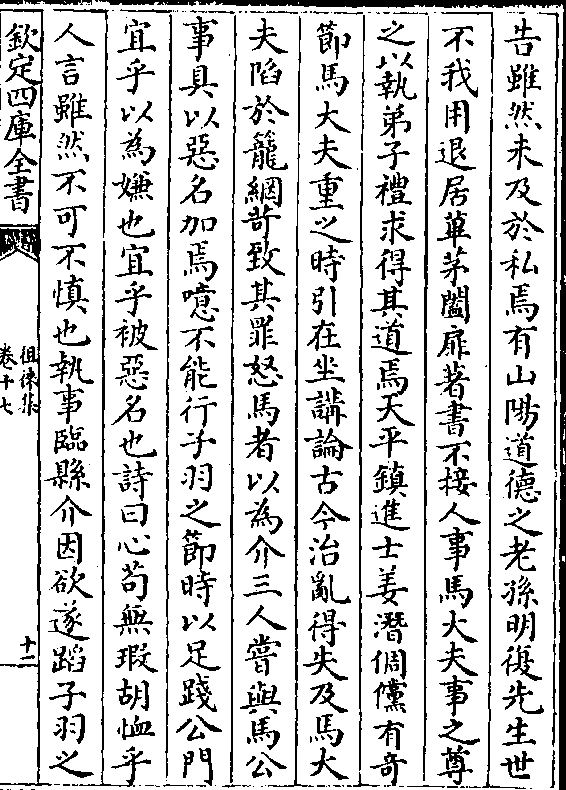 告雖然未及於私焉有山陽道德之老孫明復先生世
不我用退居草茅闔扉著書不接人事馬大夫事之尊
之以執弟子禮求得其道焉天平鎮進士姜潛倜儻有奇
節馬大夫重之時引在坐講論古今治亂得失及馬大
夫陷於籠網苛致其罪怒馬者以為介三人嘗與馬公
事具以惡名加焉噫不能行子羽之節時以足踐公門
宜乎以為嫌也宜乎被惡名也詩曰心苟無瑕胡恤乎
人言雖然不可不慎也執事臨縣介因欲遂蹈子羽之
欽定四庫全書
徂徠集
卷十七
十二